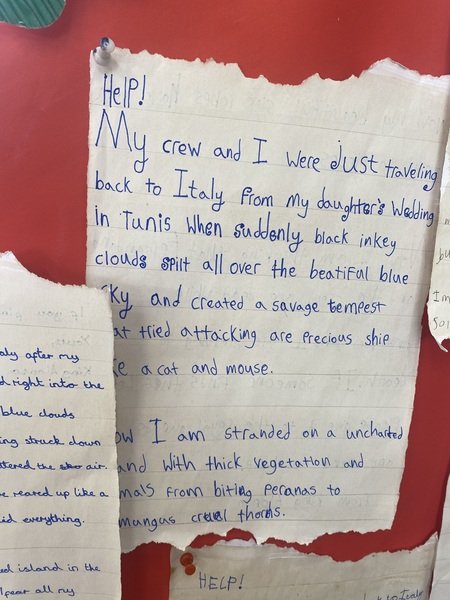 HELP!
My crew and I were just traveling
back to Italy from my daughter's Wedding
in Tunis when suddenly black inkey
clouds spilt all over the beatiful blue
sky and created a savage tempest
at tried attacking are precious ship
e a cat and mouse.
ow I am stranded on a uncharted
and with thick vegetation and
mals from biting Peranas to
mungus cruel thords.
aly after my
d right into the
blue clouds
ing struck down
ttered the air.
e reared up like a
id everything.
ed island in the
fear all my
HELP!